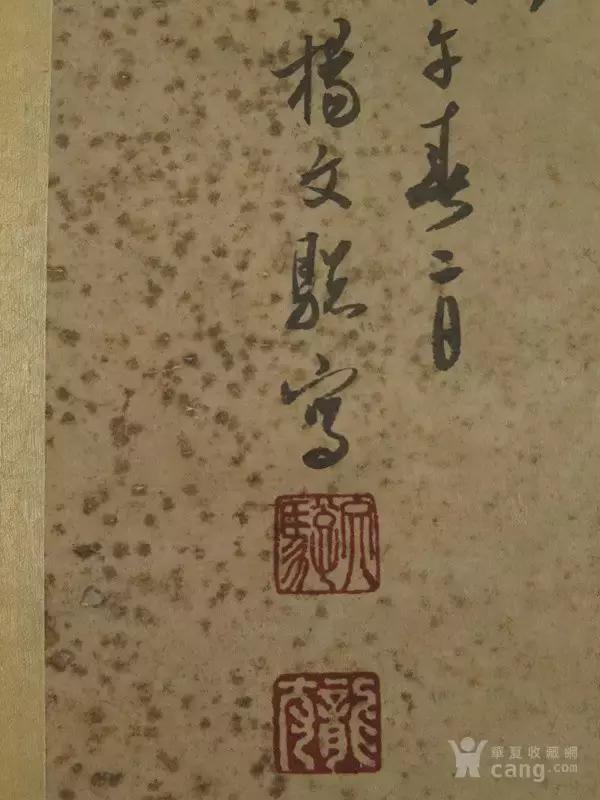 午春二月
楊文驄寫
文驄
龍友
華夏收藏網
cang.com